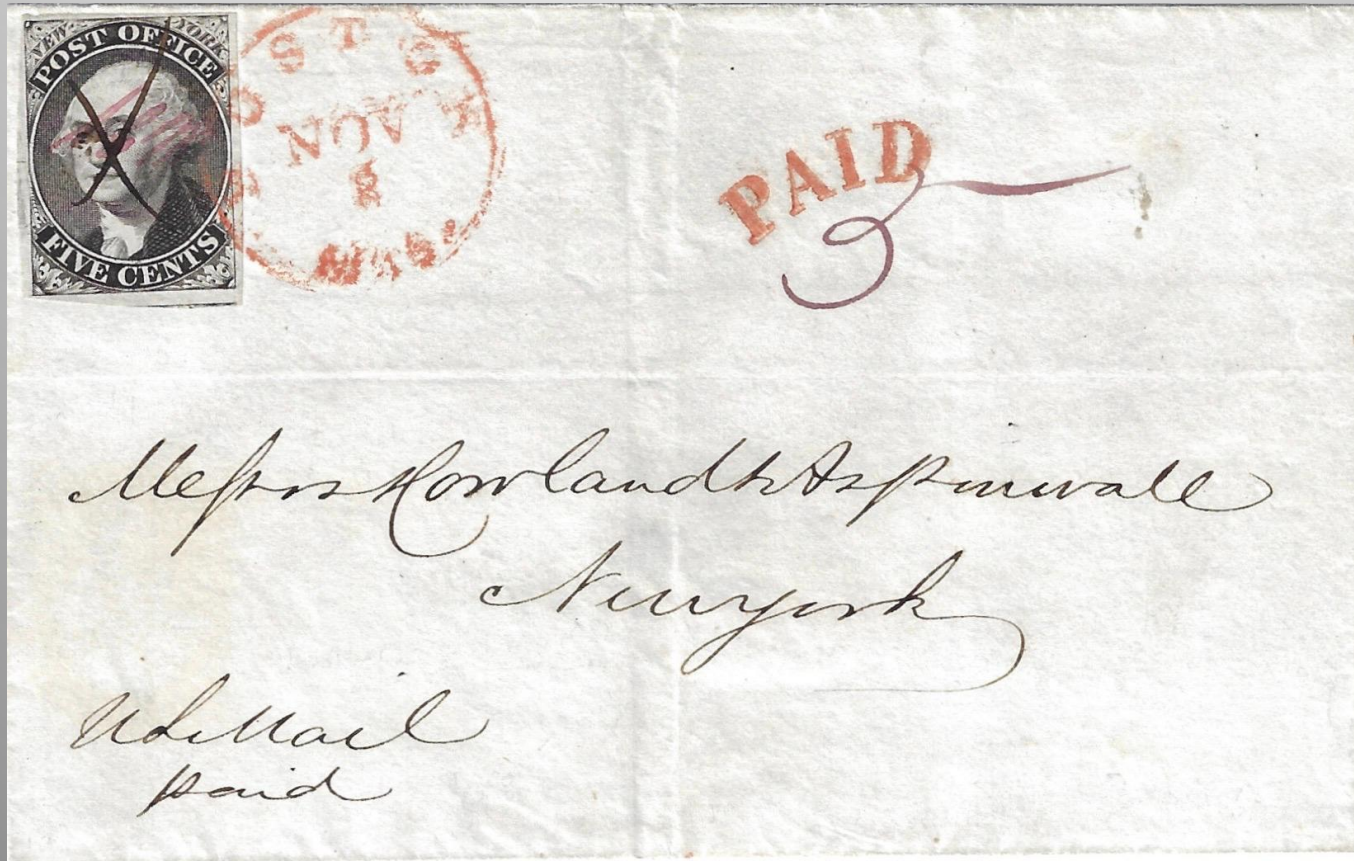 NEW YORK
POST OFFICE
FIVE CENTS
BOSTON
NOV
8
Mass.
PAID
5
Messrs Howland & Aspinwall
New York
U S Mail
paid